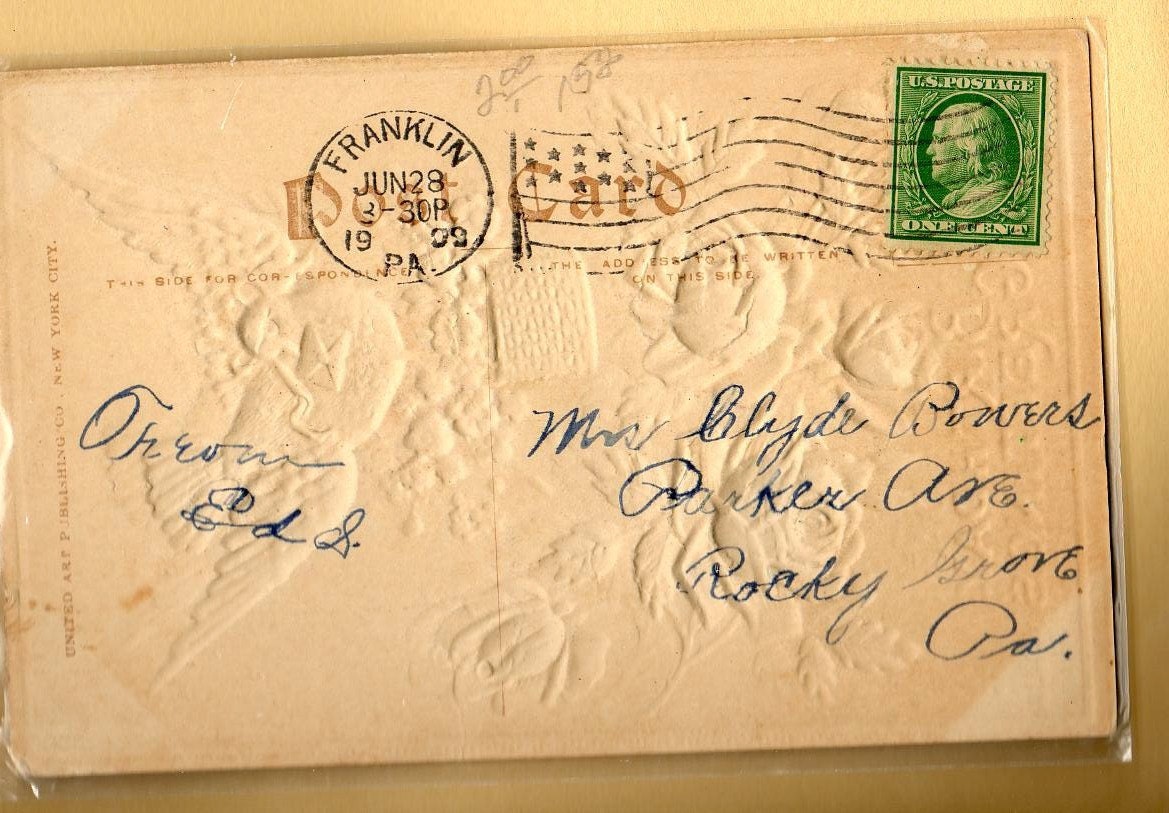 2.00 1
FRANKLIN
JUN 28
3-30P
1909
PA.
U.S. POSTAGE
ONE CENT
Post Card
THIS SIDE FOR CORRESPONDENCE
THE ADDRESS TO BE WRITTEN
ON THIS SIDE.
UNITED ART PUBLISHING CO. NEW YORK CITY.
From
Ed S.
Mrs Clyde Bowers
Parker Ave.
Rocky Grove
Pa.